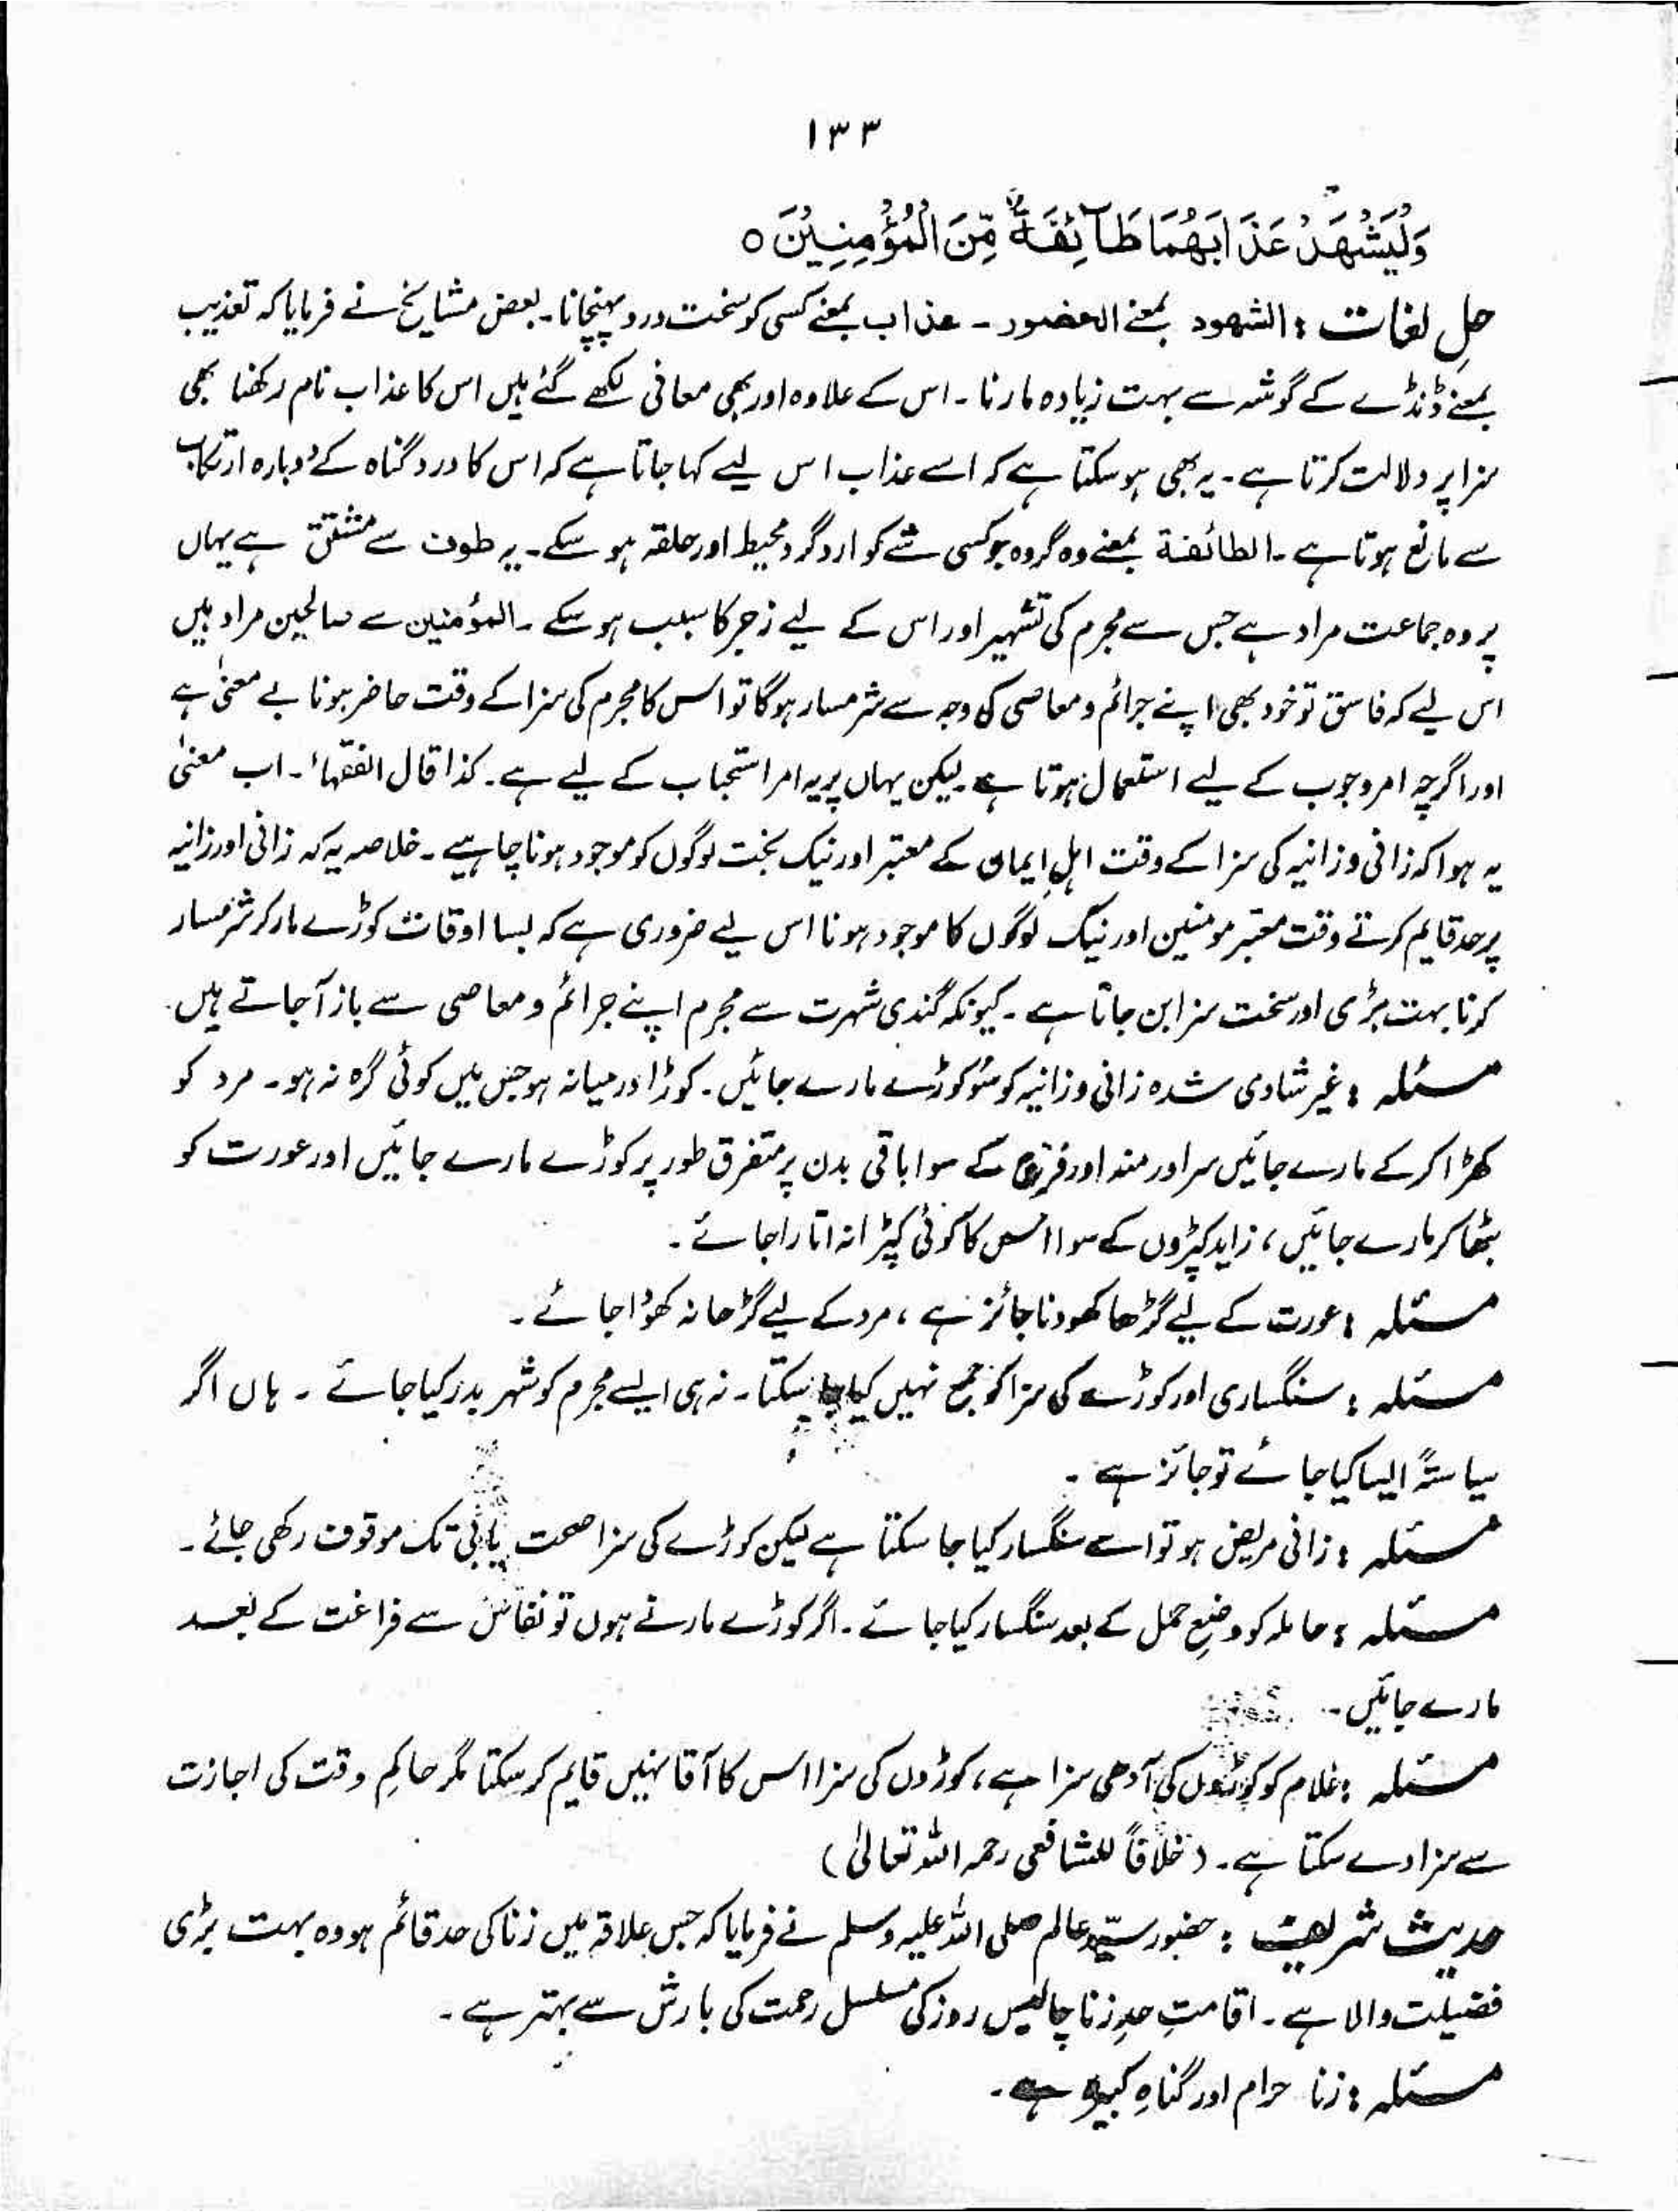 ۱۳۳
وَلْیَشْهَدْ عَذَابَهُمَا طَآئِفَةٌ مِّنَ الْمُؤْمِنِیْنَ ○
حلِ لغات : الشهود بمعنے الحضور ۔ عذاب بمعنے کسی کو سخت درد پہنچانا۔ بعض مشایخ نے فرمایا کہ تعذیب
بمعنے ڈنڈے کے گوشہ سے بہت زیادہ مارنا ۔ اس کے علاوہ اور بھی معانی لکھے گئے ہیں اس کا عذاب نام رکھنا بھی
سزا پر دلالت کرتا ہے ۔ یہ بھی ہو سکتا ہے کہ اسے عذاب اس لیے کہا جاتا ہے کہ اس کا درد گناہ کے دوبارہ ارتکاب
سے مانع ہوتا ہے ۔ الطائفة بمعنے وہ گروہ جو کسی شے کو اردگرد محیط اور حلقہ ہو سکے ۔ یہ طوف سے مشتق ہے یہاں
پر وہ جماعت مراد ہے جس سے مجرم کی تشہیر اور اس کے لیے زجر کا سبب ہو سکے ۔ المؤمنین سے صالحین مراد ہیں
اس لیے کہ فاسق تو خود بھی اپنے جرائم و معاصی کی وجہ سے شرمسار ہو گا تو اس کا مجرم کی سزا کے وقت حاضر ہونا بے معنیٰ ہے
اور اگرچہ امر وجوب کے لیے استعمال ہوتا ہے لیکن یہاں پر یہ امر استحباب کے لیے ہے ۔ کذا قال الفقہاء ۔ اب معنیٰ
یہ ہوا کہ زانی و زانیہ کی سزا کے وقت اہلِ ایمان کے معتبر اور نیک بخت لوگوں کو موجود ہونا چاہیے ۔ خلاصہ یہ کہ زانی اور زانیہ
پر حد قایم کرتے وقت معتبر مومنین اور نیک لوگوں کا موجود ہونا اس لیے ضروری ہے کہ بسا اوقات کوڑے مار کر شرمسار
کرنا بہت بڑی اور سخت سزا بن جاتا ہے ۔ کیونکہ گندی شہرت سے مجرم اپنے جرائم و معاصی سے باز آ جاتے ہیں ۔
مسئلہ : غیر شادی شدہ زانی و زانیہ کو سَو کوڑے مارے جائیں ۔ کوڑا درمیانہ ہو جس میں کوئی گرہ نہ ہو ۔ مرد کو
کھڑا کر کے مارے جائیں سر اور منہ اور فرج کے سوا باقی بدن پر متفرق طور پر کوڑے مارے جائیں اور عورت کو
بٹھا کر مارے جائیں ، زاید کپڑوں کے سوا اس کا کوئی کپڑا نہ اتارا جائے ۔
مسئلہ : عورت کے لیے گڑھا کھودنا جائز ہے ، مرد کے لیے گڑھا نہ کھودا جائے ۔
مسئلہ : سنگساری اور کوڑے کی سزا کو جمع نہیں کیا جا سکتا ۔ نہ ہی ایسے مجرم کو شہر بدر کیا جائے ۔ ہاں اگر
سیاستہً ایسا کیا جائے تو جائز ہے ۔
مسئلہ : زانی مریض ہو تو اسے سنگسار کیا جا سکتا ہے لیکن کوڑے کی سزا صحت یابی تک موقوف رکھی جائے ۔
مسئلہ : حاملہ کو وضعِ حمل کے بعد سنگسار کیا جائے ۔ اگر کوڑے مارنے ہوں تو نفاس سے فراغت کے بعد
مارے جائیں ۔
مسئلہ : غلام کو کوڑوں کی آدھی سزا ہے ، کوڑوں کی سزا اس کا آقا نہیں قایم کر سکتا مگر حاکمِ وقت کی اجازت
سے سزا دے سکتا ہے ۔ (خلافاً للشافعی رحمہ اللہ تعالیٰ)
حدیث شریف : حضور سیّدِ عالم صلی اللہ علیہ وسلم نے فرمایا کہ جس علاقہ میں زنا کی حد قائم ہو وہ بہت بڑی
فضیلت والا ہے ۔ اقامتِ حدِ زنا چالیس روز کی مسلسل رحمت کی بارش سے بہتر ہے ۔
مسئلہ : زنا حرام اور گناہِ کبیرہ ہے ۔